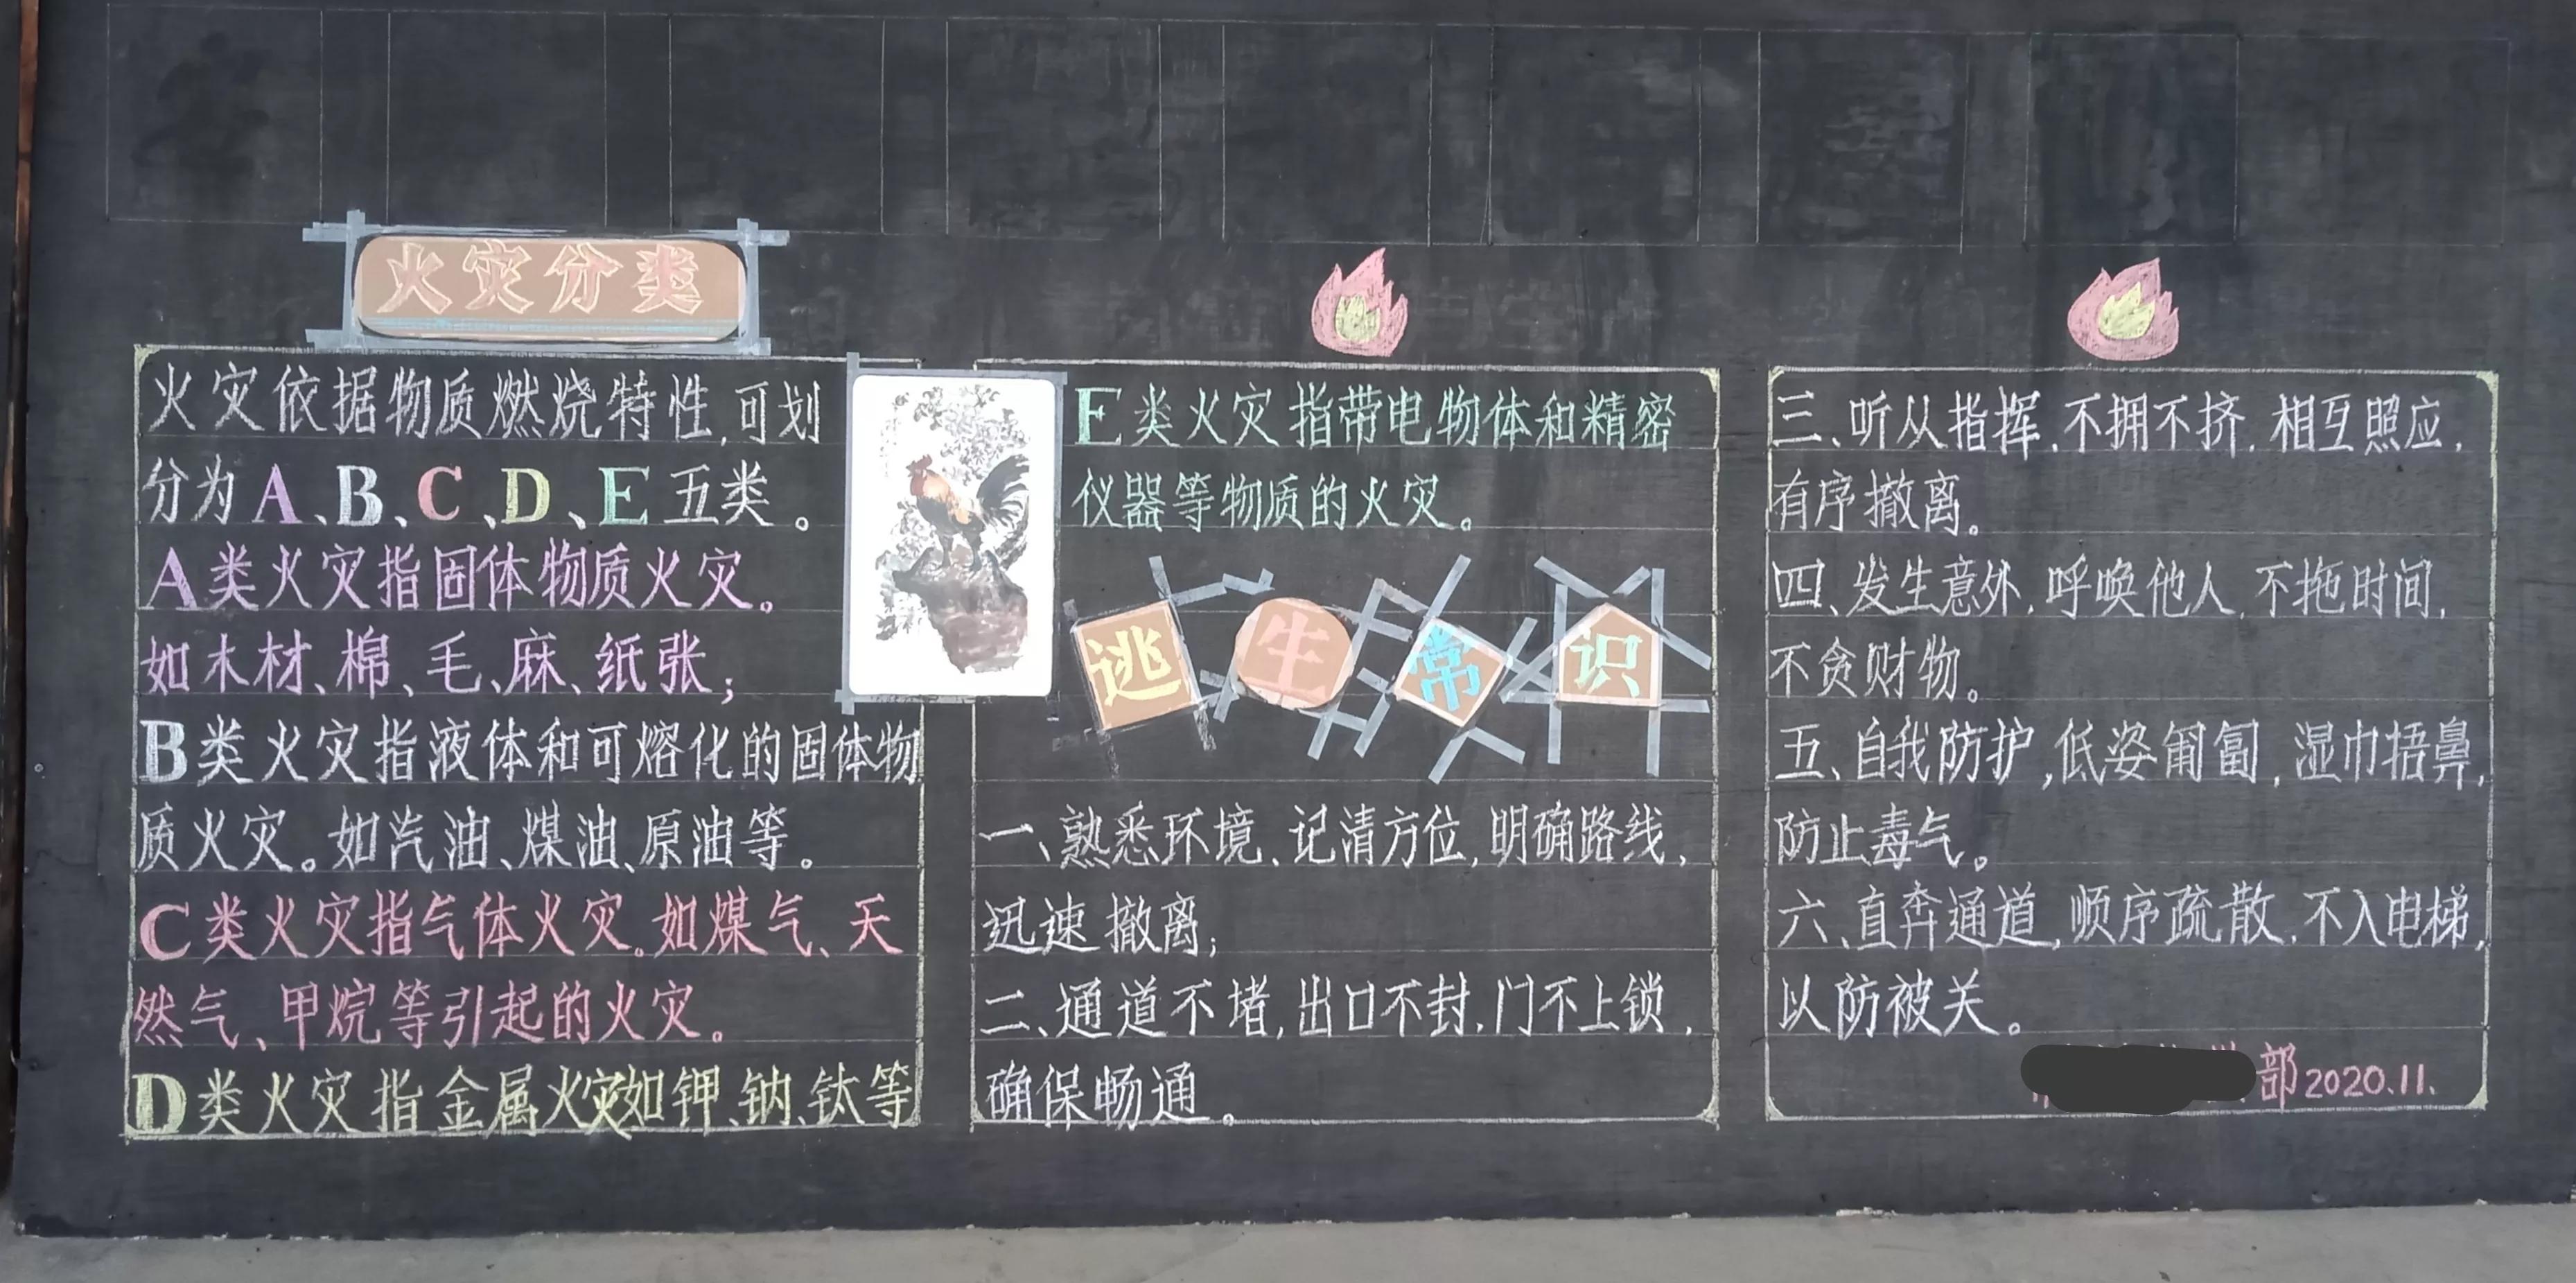 火灾分类
火灾依据物质燃烧特性,可划
分为A、B、C、D、E五类。
A类火灾指固体物质火灾。
如木材、棉、毛、麻、纸张;
B类火灾指液体和可熔化的固体物
质火灾。如汽油、煤油、原油等。
C类火灾指气体火灾。如煤气、天
然气、甲烷等引起的火灾。
D类火灾指金属火灾如钾、钠、钛等
E类火灾指带电物体和精密
仪器等物质的火灾。
逃生常识
一、熟悉环境、记清方位,明确路线,
迅速撤离;
二、通道不堵,出口不封,门不上锁,
确保畅通。
三、听从指挥,不拥不挤,相互照应,
有序撤离。
四、发生意外,呼唤他人,不拖时间,
不贪财物。
五、自我防护,低姿匍匐,湿巾捂鼻,
防止毒气。
六、直奔通道,顺序疏散,不入电梯,
以防被关。
部2020.11.